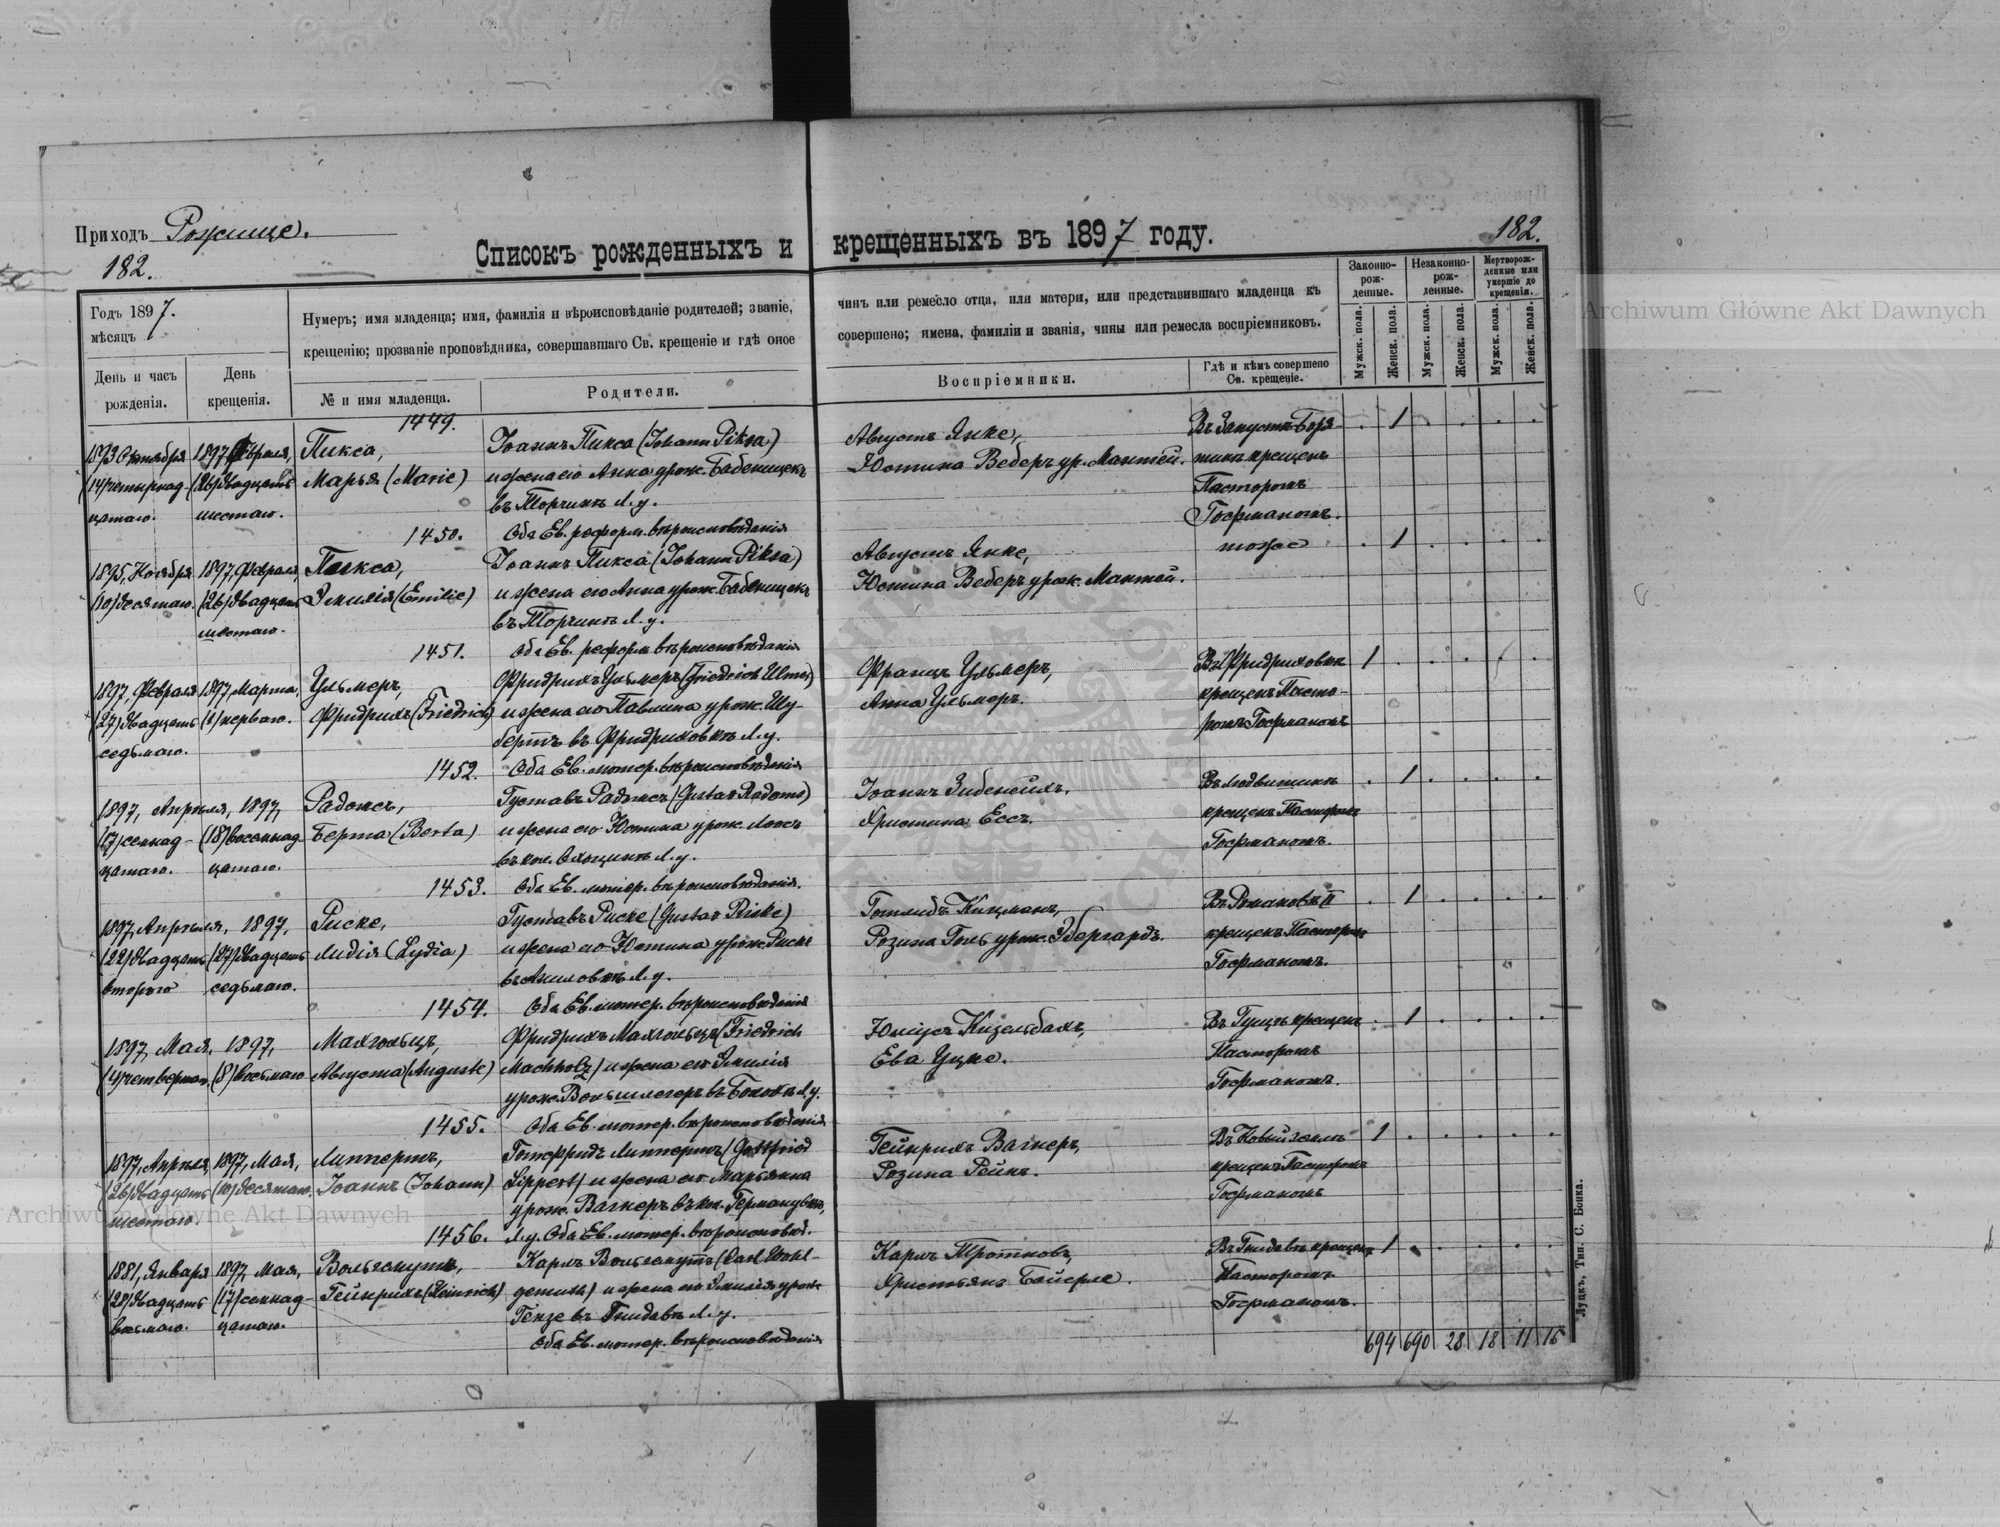 Приходъ Рожище.
182.
Списокъ рожденныхъ и крещенныхъ въ 1897 году.
182.
Годъ 1897.
мѣсяцъ
Нумеръ; имя младенца; имя, фамилія и вѣроисповѣданіе родителей; званіе,
крещенію; прозваніе проповѣдника, совершавшаго Св. крещеніе и гдѣ оное
чинъ или ремесло отца, или матери, или представившаго младенца къ
совершено; имена, фамиліи и званія, чины или ремесла воспріемниковъ.
Законно-
рож-
денные.
Незаконно-
рож-
денные.
Мертворож-
денные или
умершіе до
крещенія.
День и часъ
рожденія.
День
крещенія.
№ и имя младенца.
Родители.
Воспріемники.
Гдѣ и кѣмъ совершено
Св. крещеніе.
Мужск. пола.
Женск. пола.
Мужск. пола.
Женск. пола.
Мужск. пола.
Женск. пола.
1449.
1893 Октября
(14) четырнад-
цатаго.
1897, Февраля,
(26) двадцать
шестаго.
Пикса,
Марья (Marie)
Іоаннъ Пикса (Johann Piksa)
и жена его Анна урож. Бабенищекъ
въ Торчинѣ Л. у.
Оба Ев. реформ. вѣроисповѣданія
Августъ Янке,
Юстина Веберъ ур. Мантей.
крещенъ
Пасторомъ
Госрманомъ.
1
1450.
1895, Ноября
(10) десятаго.
1897, Февраля,
(26) двадцать
шестаго.
Пикса,
Эмилія (Emilie)
Іоаннъ Пикса (Johann Piksa)
и жена его Анна урож. Бабенищекъ
въ Торчинѣ Л. у.
Оба Ев. реформ. вѣроисповѣданія
Августъ Янке,
Юстина Веберъ урож. Мантей.
тоже
1
1451.
1897, Февраля
(27) двадцать
седьмаго.
1897, Марта,
(1) перваго.
Ульмеръ,
Фридрихъ (Friedrich)
Фридрихъ Ульмеръ (Friedrich Ulmer)
и жена его Павлина урож. Шу-
бертъ въ Фридриховкѣ Л. у.
Оба Ев. лютер. вѣроисповѣданія
Францъ Ульмеръ,
Анна Ульмеръ.
Въ Фридриховкѣ
крещенъ Пасто-
ромъ Госрманомъ
1
1452.
1897, Апрѣля,
(17) семнад-
цатаго.
1897,
(18) восемнад-
цатаго.
Радомсъ,
Берта (Berta)
Густавъ Радомсъ (Gustav Radoms)
и жена его Юстина урож.
въ кол. Л. у.
Оба Ев. лютер. вѣроисповѣданія.
Іоаннъ Зибенейхъ,
Христина Ессъ.
крещенъ Пасторомъ
Госрманомъ.
1
1453.
1897, Апрѣля,
(22) двадцать
второго
1897,
(27) двадцать
седьмаго.
Риске,
Лидія (Lydia)
Густавъ Риске (Gustav Riske)
и жена его Юстина урож. Риске
Л. у.
Оба Ев. лютер. вѣроисповѣданія
Готлибъ Кицманъ,
Розина Голь урож. Эбергардъ.
Въ Романовкѣ II
крещенъ Пасторомъ
Госрманомъ.
1
1454.
1897, Мая,
(4) четвертаго,
1897,
(8) восьмаго
Махгольцъ,
Августа (Auguste)
Фридрихъ Махгольцъ (Friedrich
Machholz) и жена его Эмилія
урож. Вольшлегеръ въ Л. у.
Оба Ев. лютер. вѣроисповѣданія
Юліусъ Кизельбахъ,
Ева Уцке.
Въ Гущѣ крещенъ
Пасторомъ
Госрманомъ.
1
1455.
1897, Апрѣля,
(26) двадцать
шестаго.
1897, Мая,
(10) десятаго.
Липпертъ,
Іоаннъ (Johann)
Готфридъ Липпертъ (Gottfried
Lippert) и жена его Марьянна
урож. Вагнеръ въ кол.
Л. у. Оба Ев. лютер. вѣроисповѣд.
Гейнрихъ Вагнеръ,
Розина Рейнъ.
крещенъ Пасторомъ
Госрманомъ
1
1456.
1881, Января
(28) двадцать
восьмаго.
1897, Мая,
(17) семнад-
цатаго.
Вольгемутъ,
Гейнрихъ (Heinrich)
Карлъ Вольгемутъ (Carl Wohl-
gemuth) и жена его Эмилія урож.
Гензе въ Гнидавѣ Л. у.
Оба Ев. лютер. вѣроисповѣданія
Карлъ Тротновъ,
Христьянъ Байерле.
Въ Гнидавѣ крещенъ
Пасторомъ
Госрманомъ.
1
694 690 28 18 11 15
Луцкъ, Тип. С. Бонка.
Archiwum Główne Akt Dawnych
Archiwum Główne Akt Dawnych